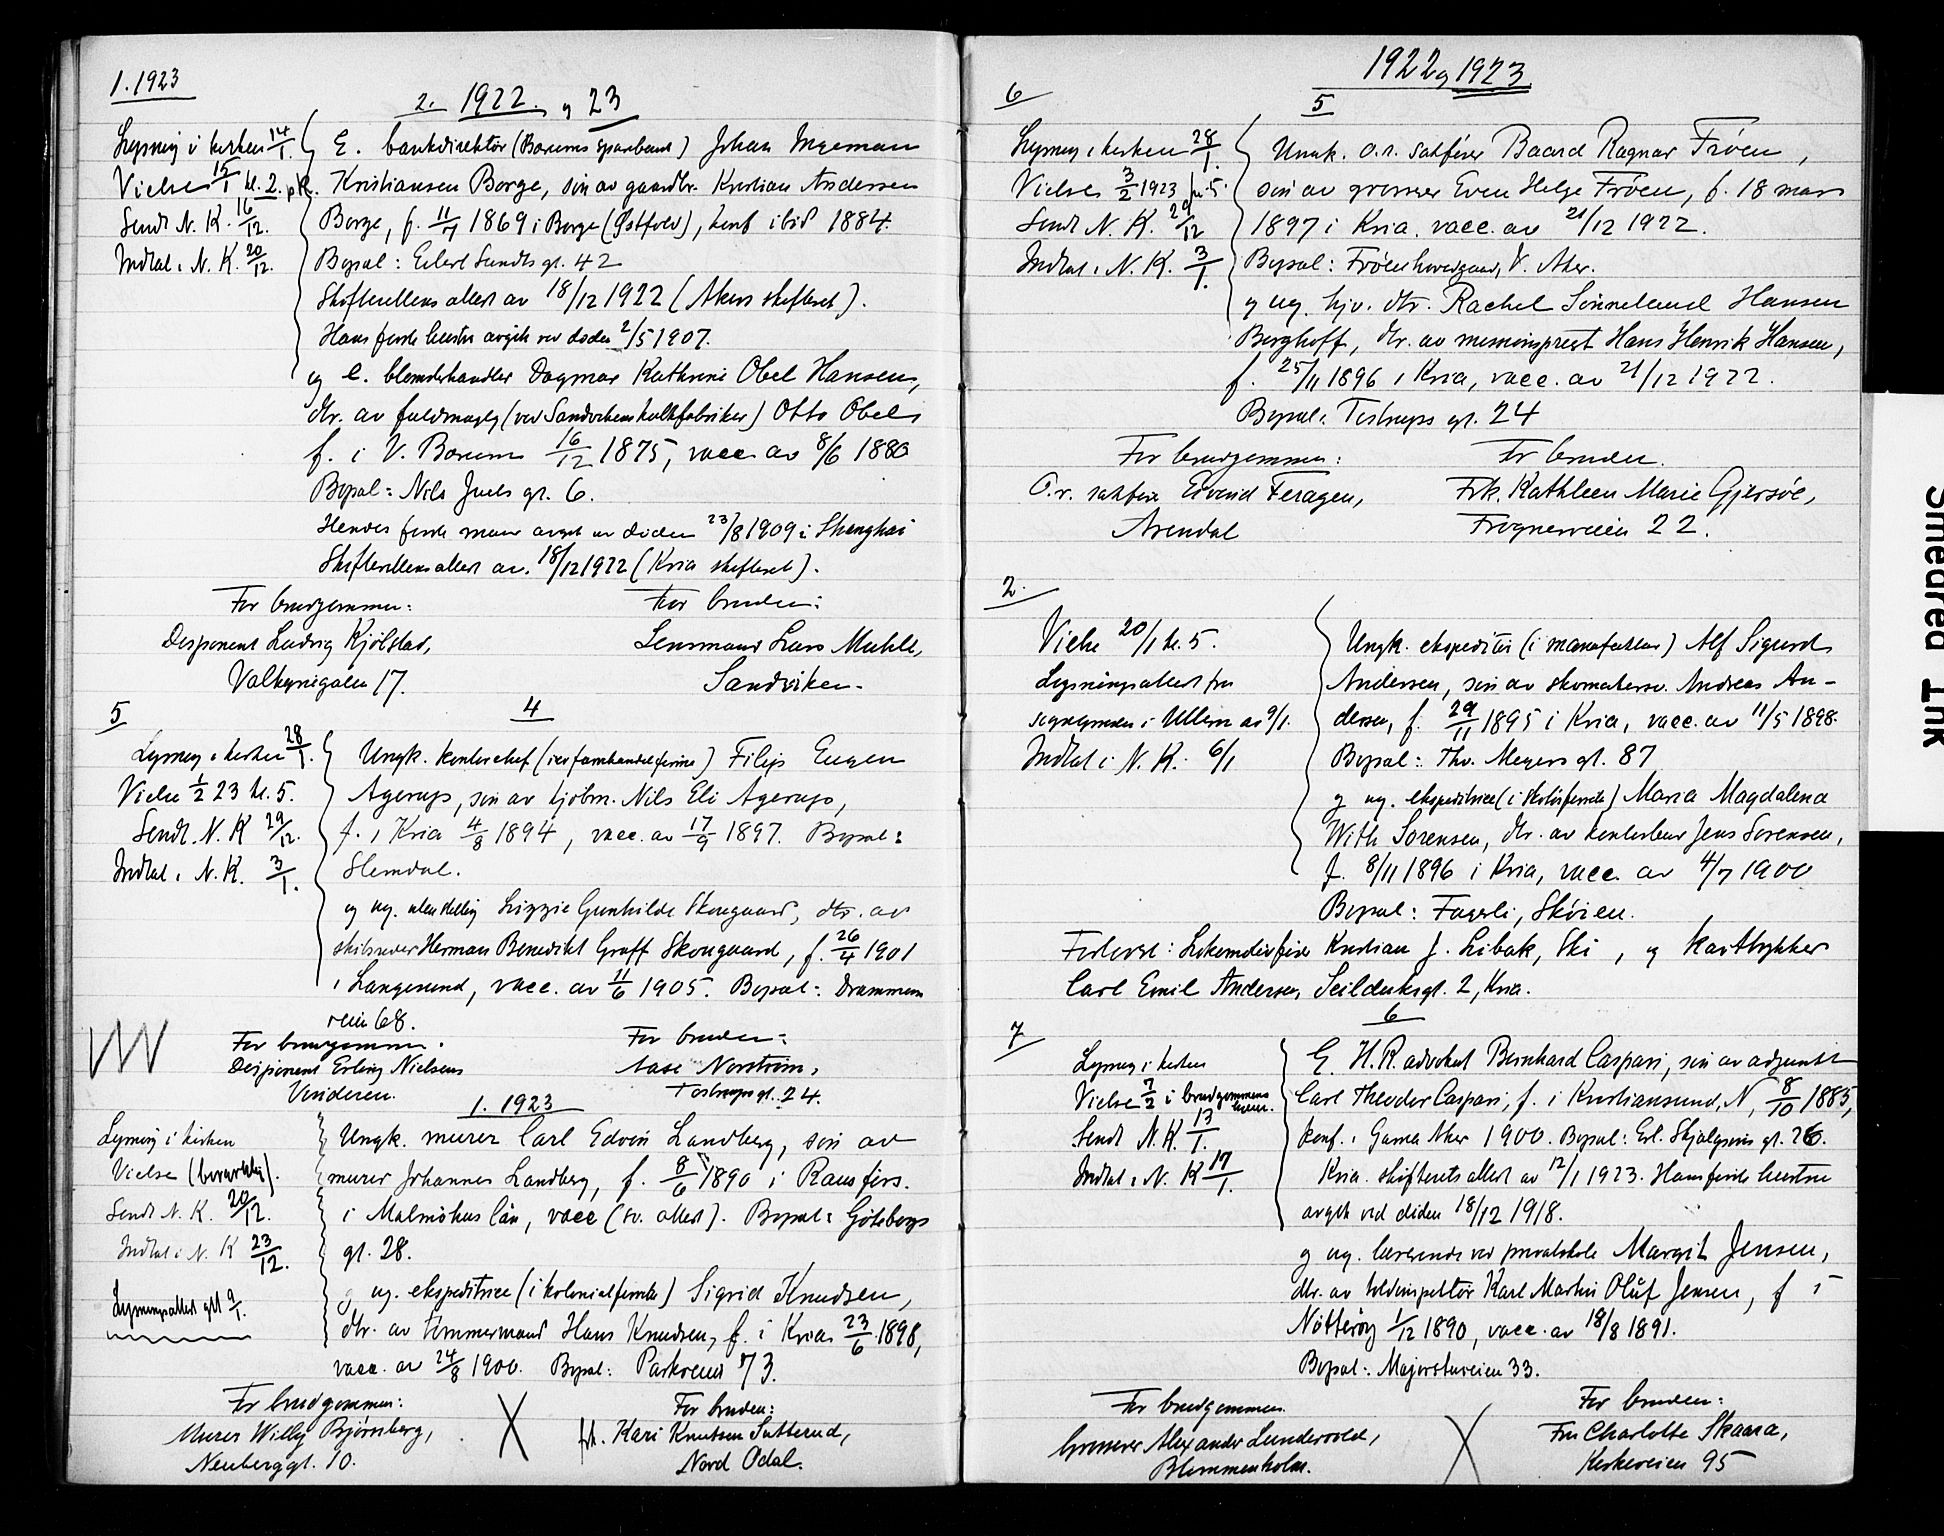 1. 1923
2. 1922. og 23
Lysning i kirken 14/1.
Vielse 15/1 kl. 2.
Sendt N. K. 16/12.
Indtat i N. K. 20/12.
E. bankdirektør (Bærums Sparebank) Johan Ingeman
Kristiansen Borge, søn av gaardbr. Kristian Andersen
Borge, f. 11/7 1869 i Borge (Østfold), konf ibid 1884.
Bopæl: Eilert Sundts gt. 42
Skifterettens attest av 18/12 1922 (Akers skifteret).
Hans første hustru avgik ved døden 2/5 1907.
og e. blomsterhandler Dagmar Kathrine Obel Hansen,
dtr. av fuldmægtig (ved Sandvikens kalkfabriker) Otto Obel,
f. i V. Bærum 16/12 1875, vacc. av 8/6 1880
Bopæl: Nils Juels gt. 6.
Hendes første mann avgik ved døden 23/8 1909 i Shanghai
Skifterettens attest av. 18/12 1922 (Kria skifteret).
For brudgommen:
For bruden:
Disponent Ludvig Kjölstad,
Lensmand Lars Muhle,
Valkyriegaten 17.
Sandviken.
5
4
Lysning i kirken 28/1.
Vielse 1/2 23 kl. 5.
Sendt N. K 29/12.
Indtat i N. K. 3/1.
Ungk. kontorchef ( ) Filip Eugen
Agerup, søn av kjøbm. Nils Eli Agerup,
f. i Kria 4/8 1894, vacc. av 17/9 1897. Bopæl:
Slemdal.
og ug. uten stilling Lizzie Gunhilde Skougaard, dtr. av
skibsreder Herman Benedikt Graff Skougaard, f. 26/4 1901
i Langesund, vacc. av 11/6 1905. Bopæl: Drammens
veien 68.
For brudgommen:
For bruden:
Disponent Erling Nielsen
Aase Norström,
Vinderen.
Tostrups gt. 24.
1. 1923
Lysning i kirken
Vielse (borgerlig).
Sendt N. K. 20/12.
Indtat i N. K 23/12.
Lysningsattest git 9/1.
Ungk. murer Carl Edvin Landberg, søn av
murer Johannes Landberg, f. 8/6 1890 i Raus førs.
i Malmöhus län, vacc (sv. attest). Bopæl: Göteborg
gt. 28.
og ug. ekspeditrice (i kolonialforretn) Sigrid Knudsen,
dtr. av tømmermand Hans Knudsen, f. i Kria 23/6 1898,
vacc. av 24/8 1900. Bopæl: Parkveien 73.
For brudgommen:
For bruden:
Murer Willy Björnberg,
frk. Kari Knutsen Sætterud,
Neuberggt. 10.
Nord Odal.
1922 og 1923
6
5
Lysning i kirken 28/1.
Vielse 3/2 1923 kl. 5.
Sendt N. K. 29/12
Indtat i N. K. 3/1.
Ungk. o.r. sakfører Baard Ragnar Frøen,
søn av grosserer Even Helge Frøen, f. 18 mars
1897 i Kria. vacc. av 21/12 1922.
Bopæl: Frøen hovedgaard, V. Aker.
og ug. hjv. dtr. Rachel Sønneland Hansen
Berghoff, dtr. av misionsprest Hans Henrik Hansen,
f. 25/11 1896 i Kria, vacc. av 21/12 1922.
Bopæl: Tostrups gt. 24
For brudgommen:
For bruden.
O.r. sakfører Eivind Feragen,
Frk. Kathleen Marie Gjersøe,
Arendal
Frognerveien 22.
2.
Vielse 20/1 kl. 5.
Lysningsattest fra
sognepresten i Ullern av 9/1.
Indtat i N. K. 6/1
Ungk. ekspeditør (i manufaktur) Alf Sigurd
Andersen, søn av skomakersv. Andreas An-
dersen, f. 29/11 1895 i Kria, vacc. av 11/5 1898.
Bopæl: Thv. Meyers gt. 87
og ug. ekspeditrice (i skotøiforretn) Maria Magdalena
With Sørensen, dtr. av kontorbud Jens Sørensen,
f. 8/11 1896 i Kria, vacc. av 4/7 1900
Bopæl: Fagerli, Skøien.
Forlovere: Lokomotivfører Kristian J. Libak, Ski, og kartbykker
Carl Emil Andersen, Seilduksgt. 2, Kria.
7
6
Lysning i kirken
Vielse 7/2 i brudgommens hjem.
Sendt N. K 13/1.
Indtat i N. K 17/1.
E. H.R. advokat Bernhard Caspari, søn av adjunkt
Carl Theodor Caspari, f. i Kristiansund, N, 8/10 1885,
konf. i Gamle Aker 1900. Bopæl: Erl. Skjalgsøns gt. 26.
Kria. skifterets attest av 12/1 1923. Hans første hustru
avgik ved døden 18/12 1918.
og ug. lærerinde ved privatskole Margit Jensen,
dtr. av toldinspektør Karl Martin Oluf Jensen, f i
Nøtterøy 1/12 1890, vacc. av 18/8 1891.
Bopæl: Majorstuveien 33.
For brudgommen
For bruden:
Grosserer Alexander Lundevold,
Fru Charlotte Skaara,
Blommenholm.
Kirkeveien 95
Smeared Ink